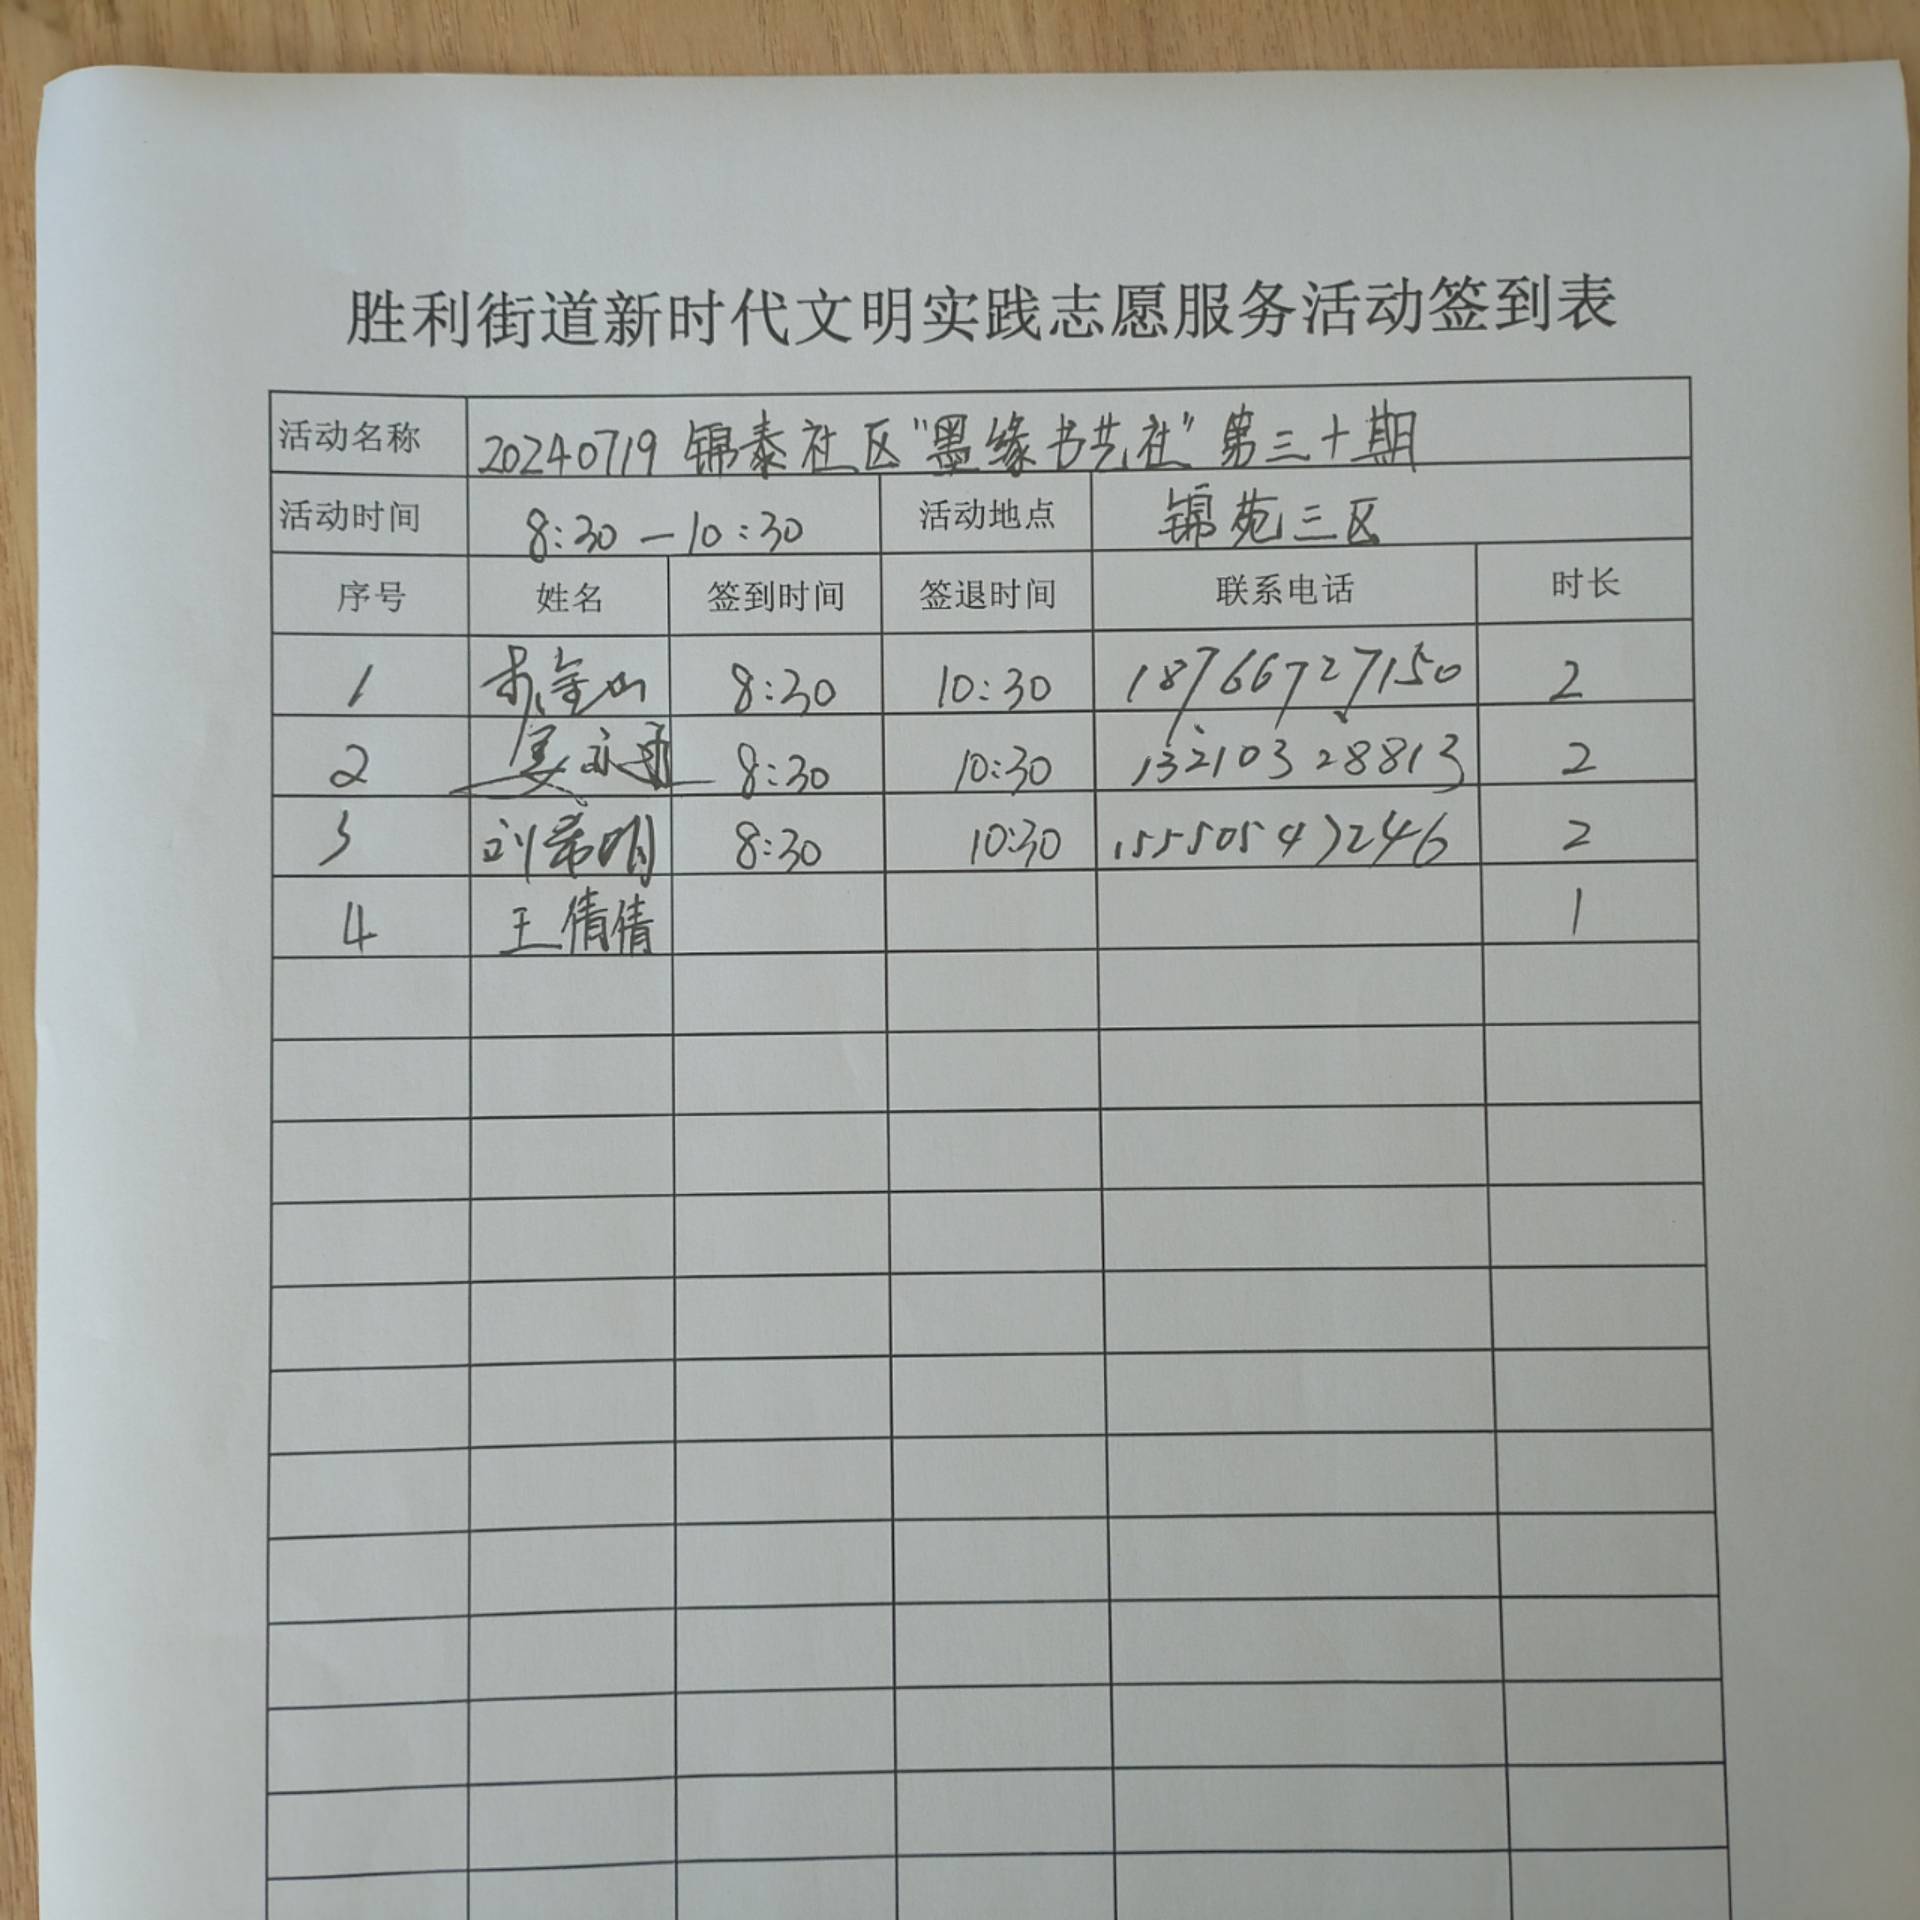 胜利街道新时代文明实践志愿服务活动签到表
活动名称 20240719 锦泰社区"墨缘书艺社"第三十期
活动时间 8:30—10:30 活动地点 锦苑三区
序号 姓名 签到时间 签退时间 联系电话 时长
1 金山 8:30 10:30 18766727150 2
2 姜永 8:30 10:30 13210328813 2
3 刘希明 8:30 10:30 15550547246 2
4 王倩倩 1